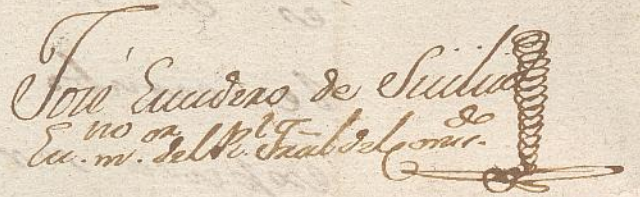 José Escudero de Sicilia
Es.no m.or del R.l Trâal del Comis.do